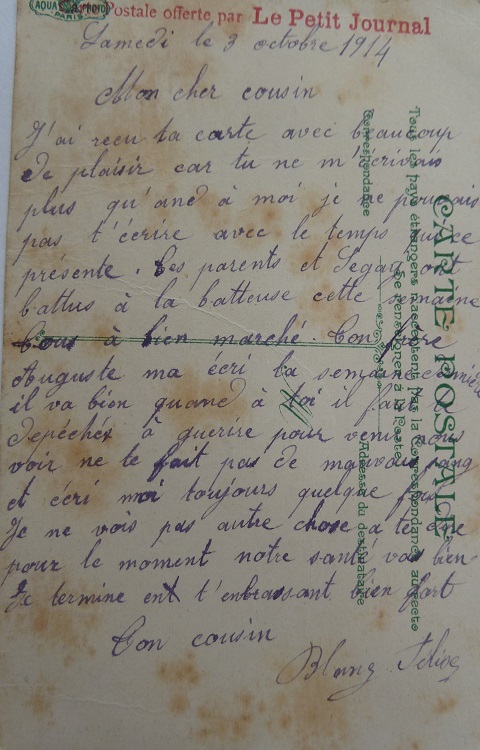 AQUA PHOTO
PARIS
Postale offerte par Le Petit Journal
Samedi le 3 octobre 1914
Mon cher cousin
J'ai reçu ta carte avec beaucoup
de plaisir car tu ne m'écrivais
plus qu'and à moi je ne pouvais
pas t'écrire avec le temps
présente. Tes parents et Segaz ont
battus à la batteuse cette semaine
Tous à bien marché. Ton frère
Auguste ma écri la semaine dernière
il va bien quand à toi il faut te
depécher à guérire pour venir nous
voir ne te fait pas de mauvau sang
et écri moi toujours quelque fois
Je ne vois pas autre chose à te dire
pour le moment notre santé vas bien
Je termine ent t'enbrassant bien fort
Ton cousin
CARTE POSTALE
Tous les pays étrangers n'acceptent pas la Correspondance au recto
(Se renseigner à la Poste)
Correspondance
Adresse du destinataire